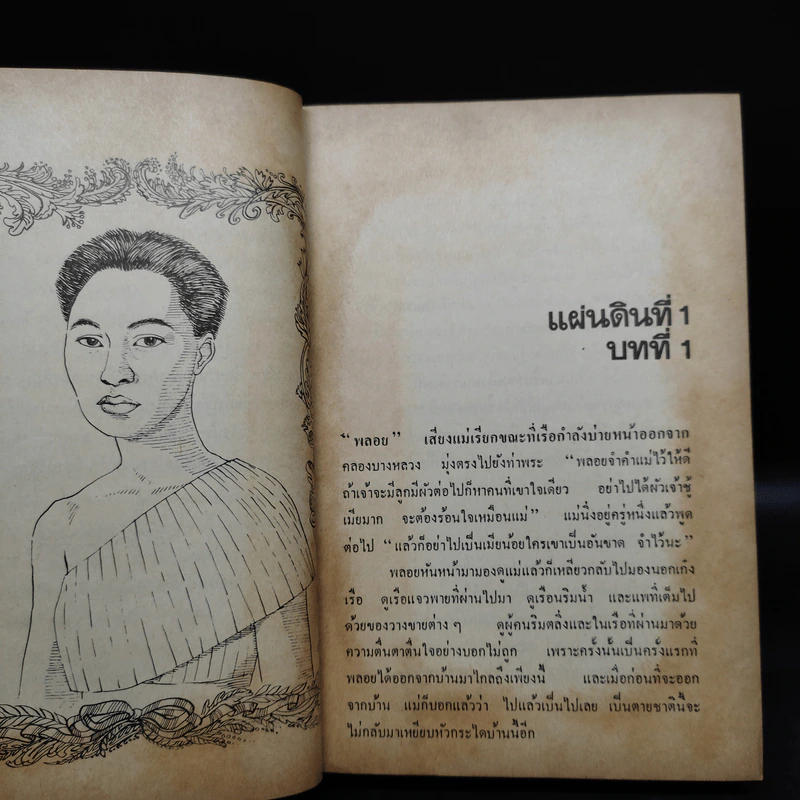 แผ่นดินที่ 1
บทที่ 1
“ พลอย ” เสียงแม่เรียกขณะที่เรือกำลังบ่ายหน้าออกจาก
คลองบางหลวง มุ่งตรงไปยังท่าพระ “พลอยจำคำแม่ไว้ให้ดี
ถ้าเจ้าจะมีลูกมีผัวต่อไปก็หาคนที่เขาใจเดียว อย่าไปได้ผัวเจ้าชู้
เมียมาก จะต้องร้อนใจเหมือนแม่” แม่นิ่งอยู่ครู่หนึ่งแล้วพูด
ต่อไป “แล้วก็อย่าไปเป็นเมียน้อยใครเขาเป็นอันขาด จำไว้นะ”
พลอยหันหน้ามามองดูแม่แล้วก็เหลียวกลับไปมองนอกเก๋ง
เรือ ดูเรือแจวพายที่ผ่านไปมา ดูเรือนริมน้ำ และแพที่เต็มไป
ด้วยของวางขายต่าง ๆ ดูผู้คนริมตลิ่งและในเรือที่ผ่านมาด้วย
ความตื่นตาตื่นใจอย่างบอกไม่ถูก เพราะครั้งนั้นเป็นครั้งแรกที่
พลอยได้ออกจากบ้านมาไกลถึงเพียงนี้ และเมื่อก่อนที่จะออก
จากบ้าน แม่ก็บอกแล้วว่า ไปแล้วเป็นไปเลย เป็นตายชาตินี้จะ
ไม่กลับมาเหยียบหัวกระไดบ้านนี้อีก